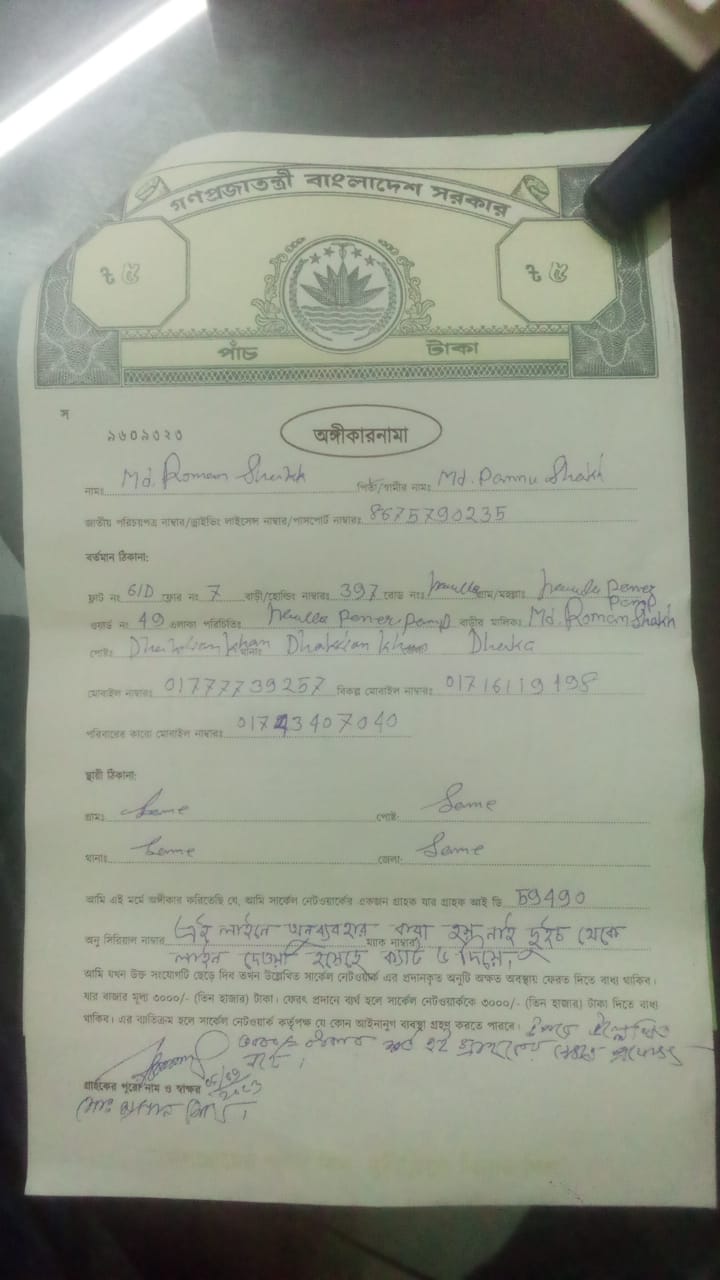 গণপ্রজাতন্ত্রী বাংলাদেশ সরকার
৳ ৫ ৳ ৫
পাঁচ টাকা
স
৯৬০৯০২০
অঙ্গীকারনামা
নামঃ Md. Roman Sheikh পিতা/স্বামীর নামঃ Md. Pannu Shakh
জাতীয় পরিচয়পত্র নাম্বার/ড্রাইভিং লাইসেন্স নাম্বার/পাসপোর্ট নাম্বারঃ 8675790235
বর্তমান ঠিকানা:
ফ্ল্যাট নং 61D ফ্লোর নং 7 বাড়ী/হোল্ডিং নাম্বারঃ 397 রোড নংঃ গ্রাম/মহল্লাঃ
ওয়ার্ড নং 49 এলাকা পরিচিতিঃ বাড়ীর মালিকঃ Md. Roman Shakh
পোষ্টঃ থানাঃ Dhaka
মোবাইল নাম্বারঃ 01777739257 বিকল্প মোবাইল নাম্বারঃ 01716119498
পরিবারের কারো মোবাইল নাম্বারঃ 01743407040
স্থায়ী ঠিকানা:
গ্রামঃ Same পোষ্ট: Same
থানাঃ Same জেলা: Same
আমি এই মর্মে অঙ্গীকার করিতেছি যে, আমি সার্কেল নেটওয়ার্কের একজন গ্রাহক যার গ্রাহক আই ডি 59490
অনু সিরিয়াল নাম্বার এই লাইনে অনু ব্যবহার করা হয় নাই সুইচ থেকে
ম্যাক নাম্বার)
লাইন দেওয়া হয়েছে ক্যাট ৬ দিয়ে।
আমি যখন উক্ত সংযোগটি ছেড়ে দিব তখন উল্লেখিত সার্কেল নেটওয়ার্ক এর প্রদানকৃত অনুটি অক্ষত অবস্থায় ফেরত দিতে বাধ্য থাকিব।
যার বাজার মূল্য ৩০০০/- (তিন হাজার) টাকা। ফেরৎ প্রদানে ব্যর্থ হলে সার্কেল নেটওয়ার্ককে ৩০০০/- (তিন হাজার) টাকা দিতে বাধ্য
থাকিব। এর ব্যতিক্রম হলে সার্কেল নেটওয়ার্ক কর্তৃপক্ষ যে কোন আইনানুগ ব্যবস্থা গ্রহণ করতে পারবে।
গ্রাহকের পুরো নাম ও স্বাক্ষর